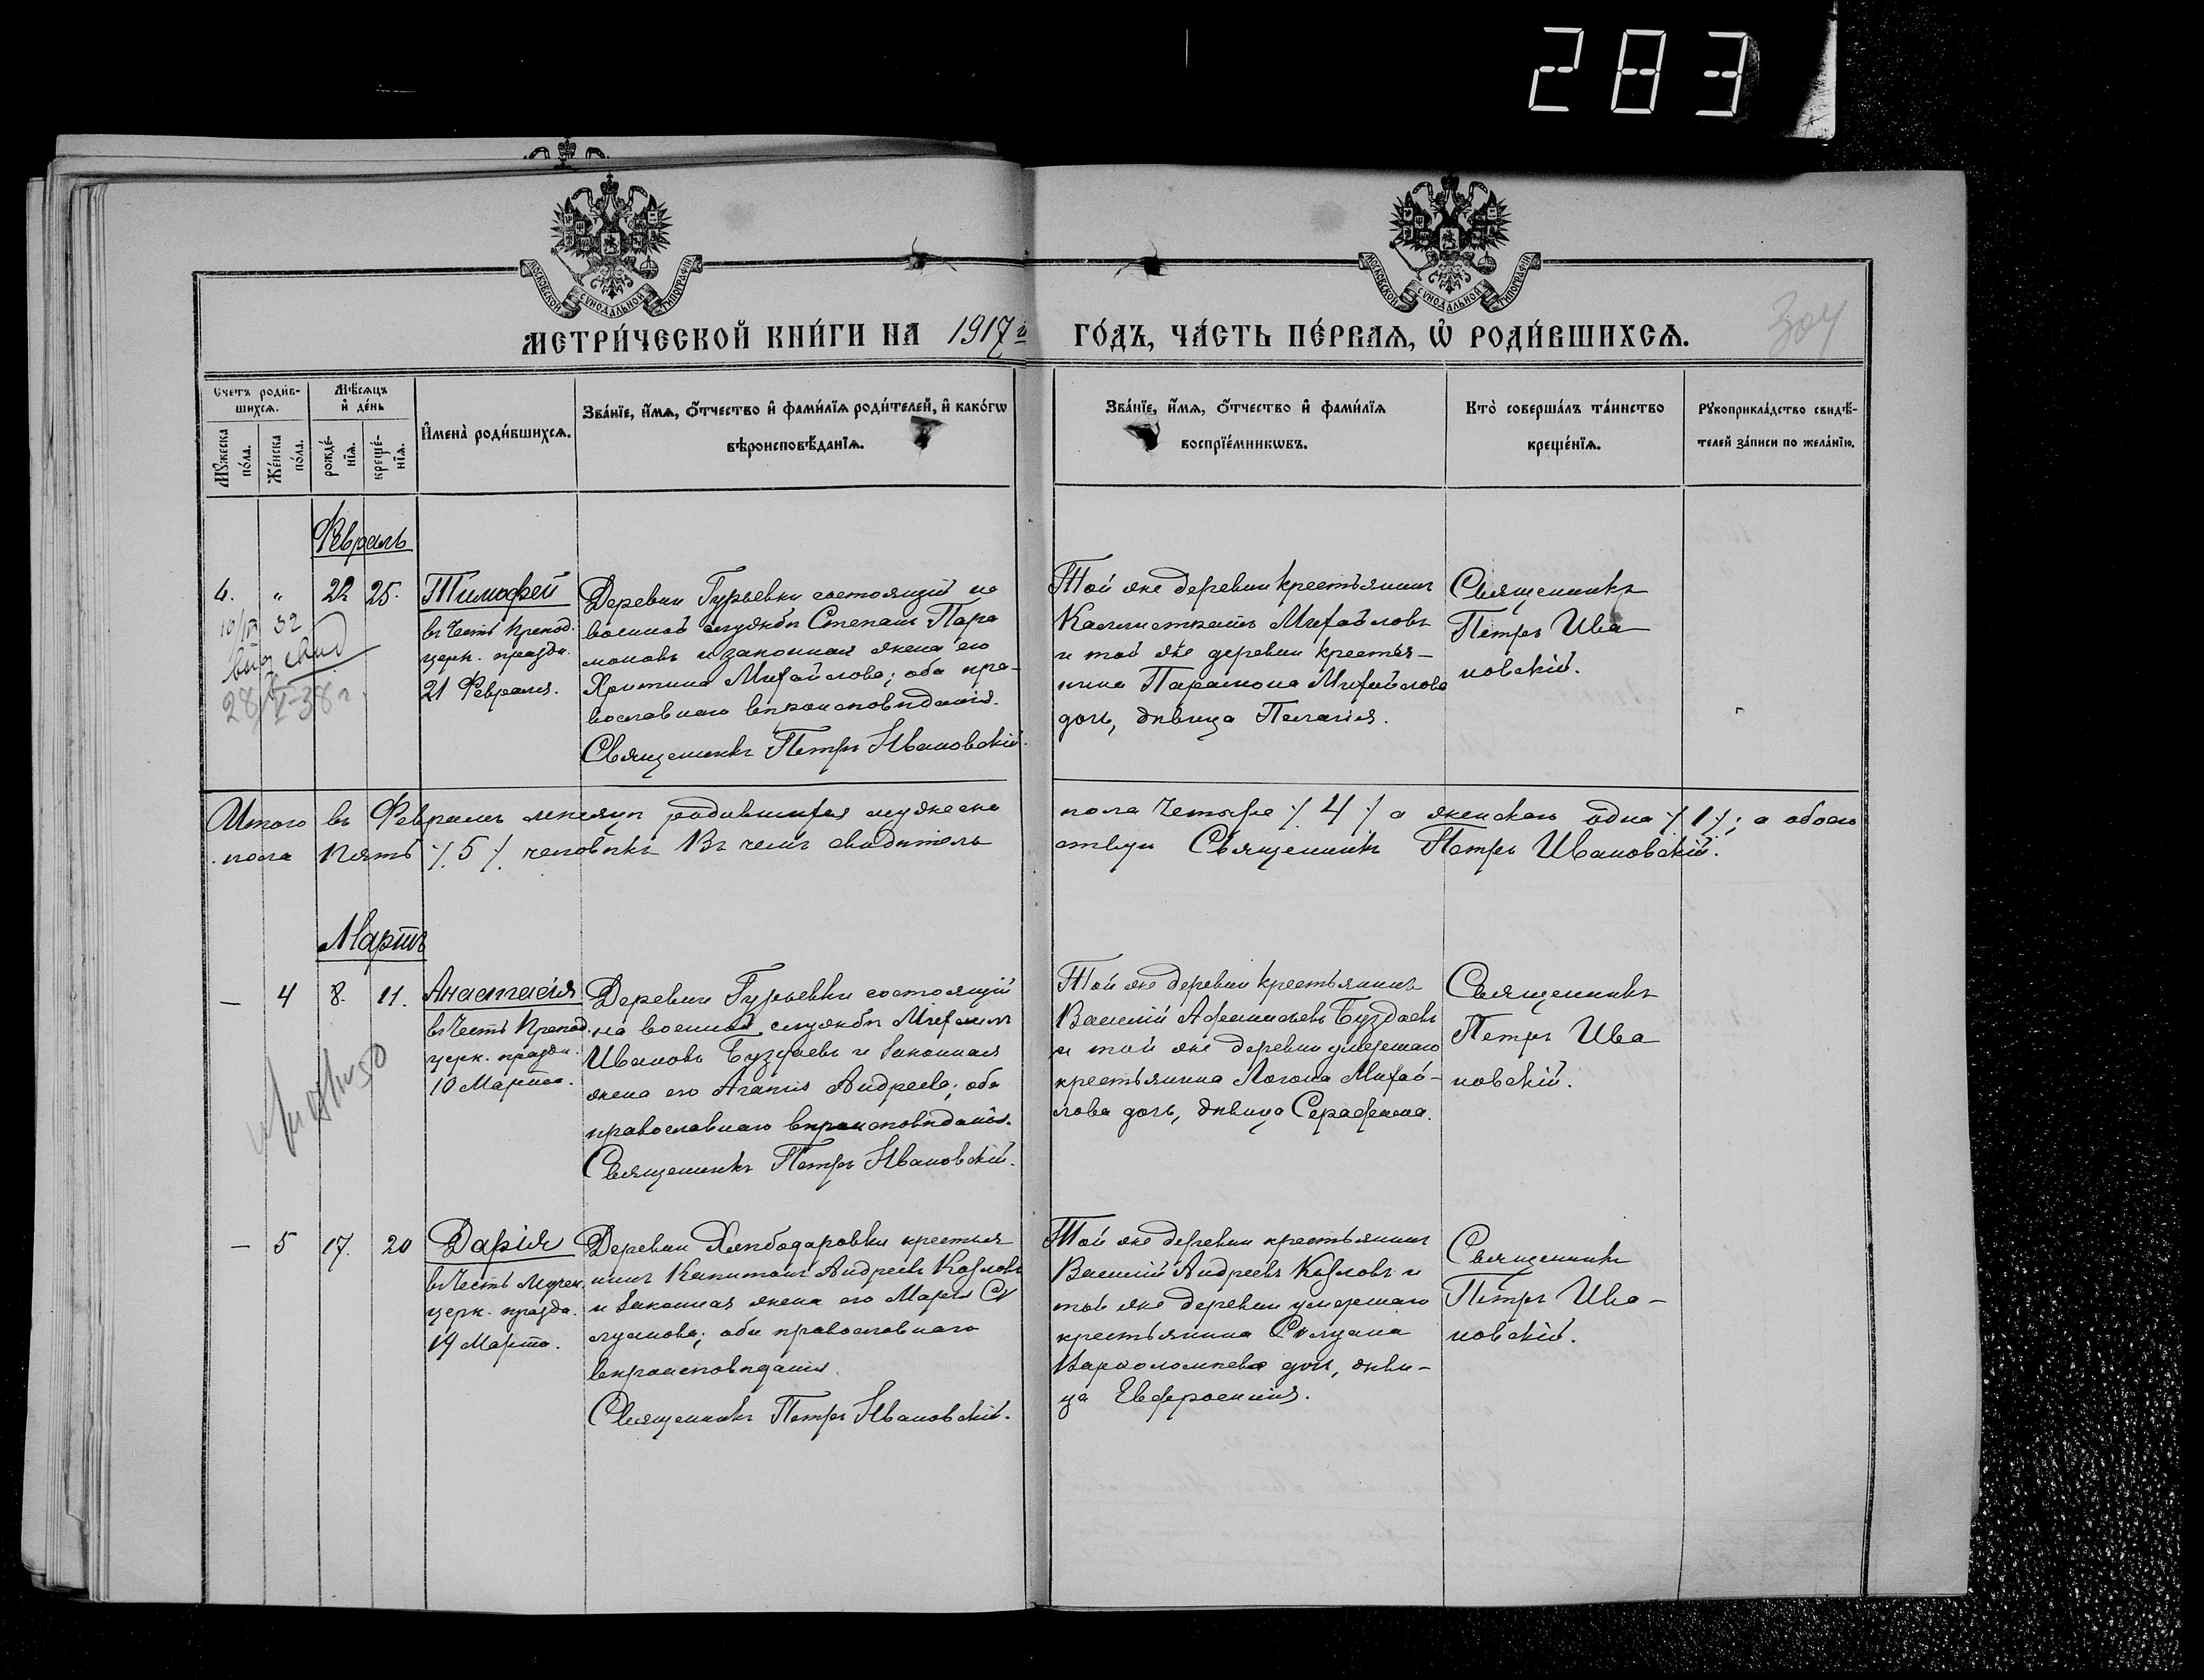 283
МОСКОВСКОЙ СѴНОДАЛЬНОЙ ТИПОГРАФІИ
МОСКОВСКОЙ СѴНОДАЛЬНОЙ ТИПОГРАФІИ
304
МЕТРИ́ЧЕСКОЙ КНИ́ГИ НА 1917 й ГО́ДЪ, ЧА́СТЬ ПЕ́РВАѦ, Ѽ РОДИ́ВШИХСѦ.
Счетъ роди́в-
шихсѧ.
Мꙋжеска
по́ла.
Же́нска
по́ла.
Мѣ́сѧцъ
и҆ де́нь
рожде́-
нїѧ.
креще́-
нїѧ.
И҆мена̀ роди́вшихсѧ.
Зва́нїе, и҆́мѧ, ѻ҆́тчество и҆ фами́лїѧ роди́телей, и҆ како́гѡ
вѣроисповѣ́данїѧ.
Зва́нїе, и҆́мѧ, ѻ҆́тчество и҆ фами́лїѧ
воспрїе́мникѡвъ.
Кто̀ соверша́лъ та́инство
креще́нїѧ.
Рꙋкоприкла́дство свидѣ́-
телей за́писи по жела́нїю.
Февраль
4. " 22 25.
Тимофей
въ честь препод.
церк. праздн.
21 Февраля.
Деревни Гурьевки состоящий на
военной службѣ Степанъ Пара
моновъ и законная жена его
Христина Михайлова; оба пра-
вославнаго вѣроисповѣданія.
Священникъ Петръ Ивановскій.
Той же деревни крестьянинъ
Каллистратъ Михайловъ
и той же деревни крестья-
нина Парамона Михайлова
дочь, дѣвица Пелагія.
Священникъ
Петръ Ива
новскій.
32
28 38 г.
Итого въ Февралѣ мѣсяцѣ родившихся мужеска пола четыре /. 4 ./ а женскаго одна ./ 1 ./; а обоего
пола пять /. 5 /. человѣкъ Въ чемъ свидѣтельствуи Священникъ Петръ Ивановскій.
Мартъ
— 4 8. 11.
Анастасія
въ честь препод.
церк. праздн.
10 Марта.
Деревни Гурьевки состоящій
на военной службѣ Михаилъ
Ивановъ Буздаевъ и законная
жена его Агапія Андреева; оба
православнаго вѣроисповѣданія.
Священникъ Петръ Ивановскій.
Той же деревни крестьянинъ
Василій Буздаевъ
и той же деревни умершаго
крестьянина Логина Михай-
лова дочь, дѣвица Серафима.
Священникъ
Петръ Ива
новскій.
— 5 17. 20
Дарія
въ честь мучен.
церк. праздн.
19 Марта.
Деревни Хлѣбодаровки крестья
нинъ Капитонъ Андреевъ Козловъ
и законная жена его Марія Си
луанова; оба православнаго
вѣроисповѣданія.
Священникъ Петръ Ивановскій.
Той же деревни крестьянинъ
Василій Андреевъ Козловъ и
той же деревни умершаго
крестьянина Силуана
Варѳоломѣева дочь, дѣви-
ца Евфросинія.
Священникъ
Петръ Ива-
новскій.